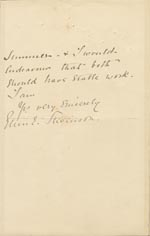 Summer - & I would
Endeavour that both
should have stable work.
I am
Yrs very sincerely
Stevenson.